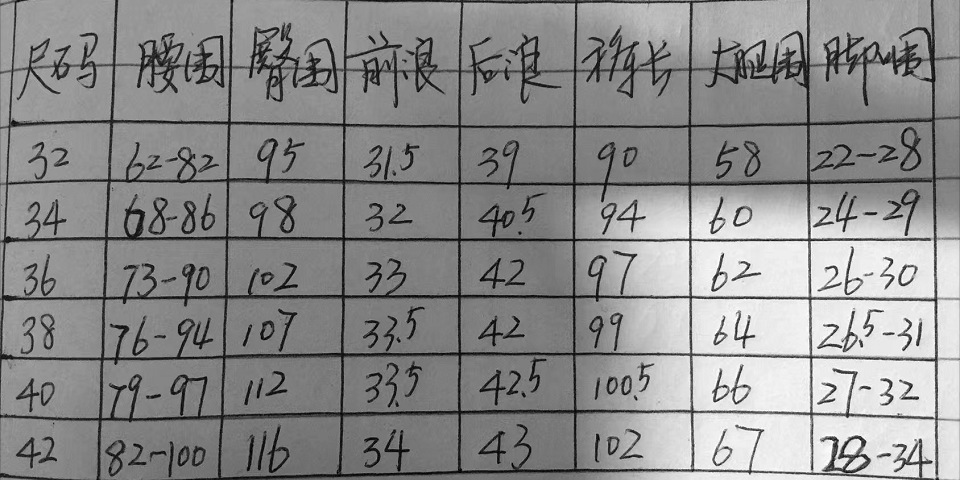 尺码 腰围 臀围 前浪 后浪 裤长 大腿围 脚口围
32 62-82 95 31.5 39 90 58 22-28
34 68-86 98 32 40.5 94 60 24-29
36 73-90 102 33 42 97 62 26-30
38 76-94 107 33.5 42 99 64 26.5-31
40 79-97 112 33.5 42.5 100.5 66 27-32
42 82-100 116 34 43 102 67 28-34